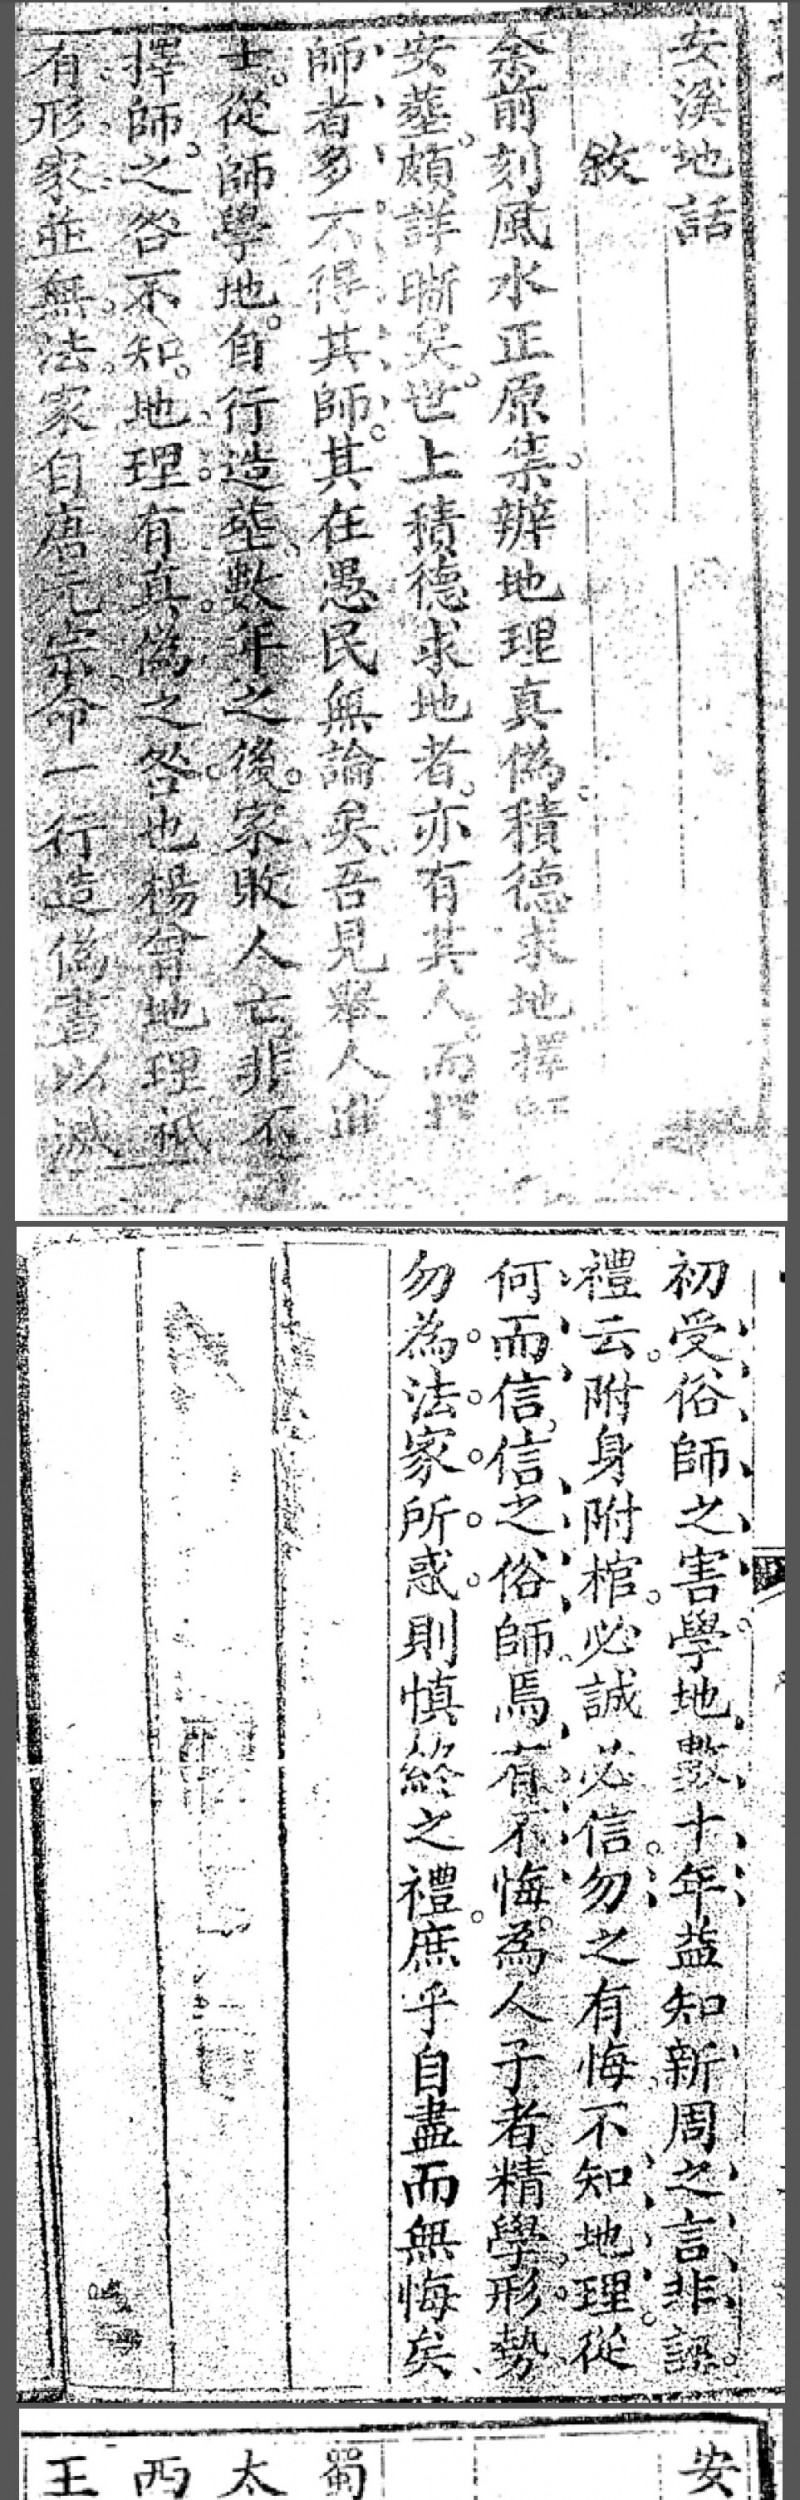 安溪地話
敘
余前刻風水正原集辦地理真偽積德求地擇
安塟頗詳晰矣世上積德求地者亦有其人而擇
師者多不得其師其在愚民無論矣吾見舉人進
士從師學地自行造塟數年之後家敗人亡非不
擇師之咎不知地理有真偽之咎也楊曾地理祗
有形家並無法家自唐元宗命一行造偽書以滅
初受俗師之害學地數十年益知新周之言非誣
禮云附身附棺必誠必信勿之有悔不知地理從
何而信信之俗師焉有不悔為人子者精學形勢
勿為法家所惑則慎終之禮庶乎自盡而無悔矣
安
蜀
太
西
王